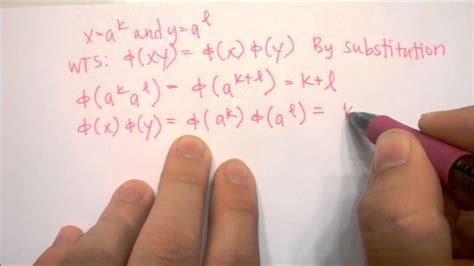 x=a^k and y=a^l
WTS: ϕ(xy) = ϕ(x) ϕ(y) By substitution
ϕ(a^k a^l) = ϕ(a^{k+l}) = k+l
ϕ(x) ϕ(y) = ϕ(a^k) ϕ(a^l) = k